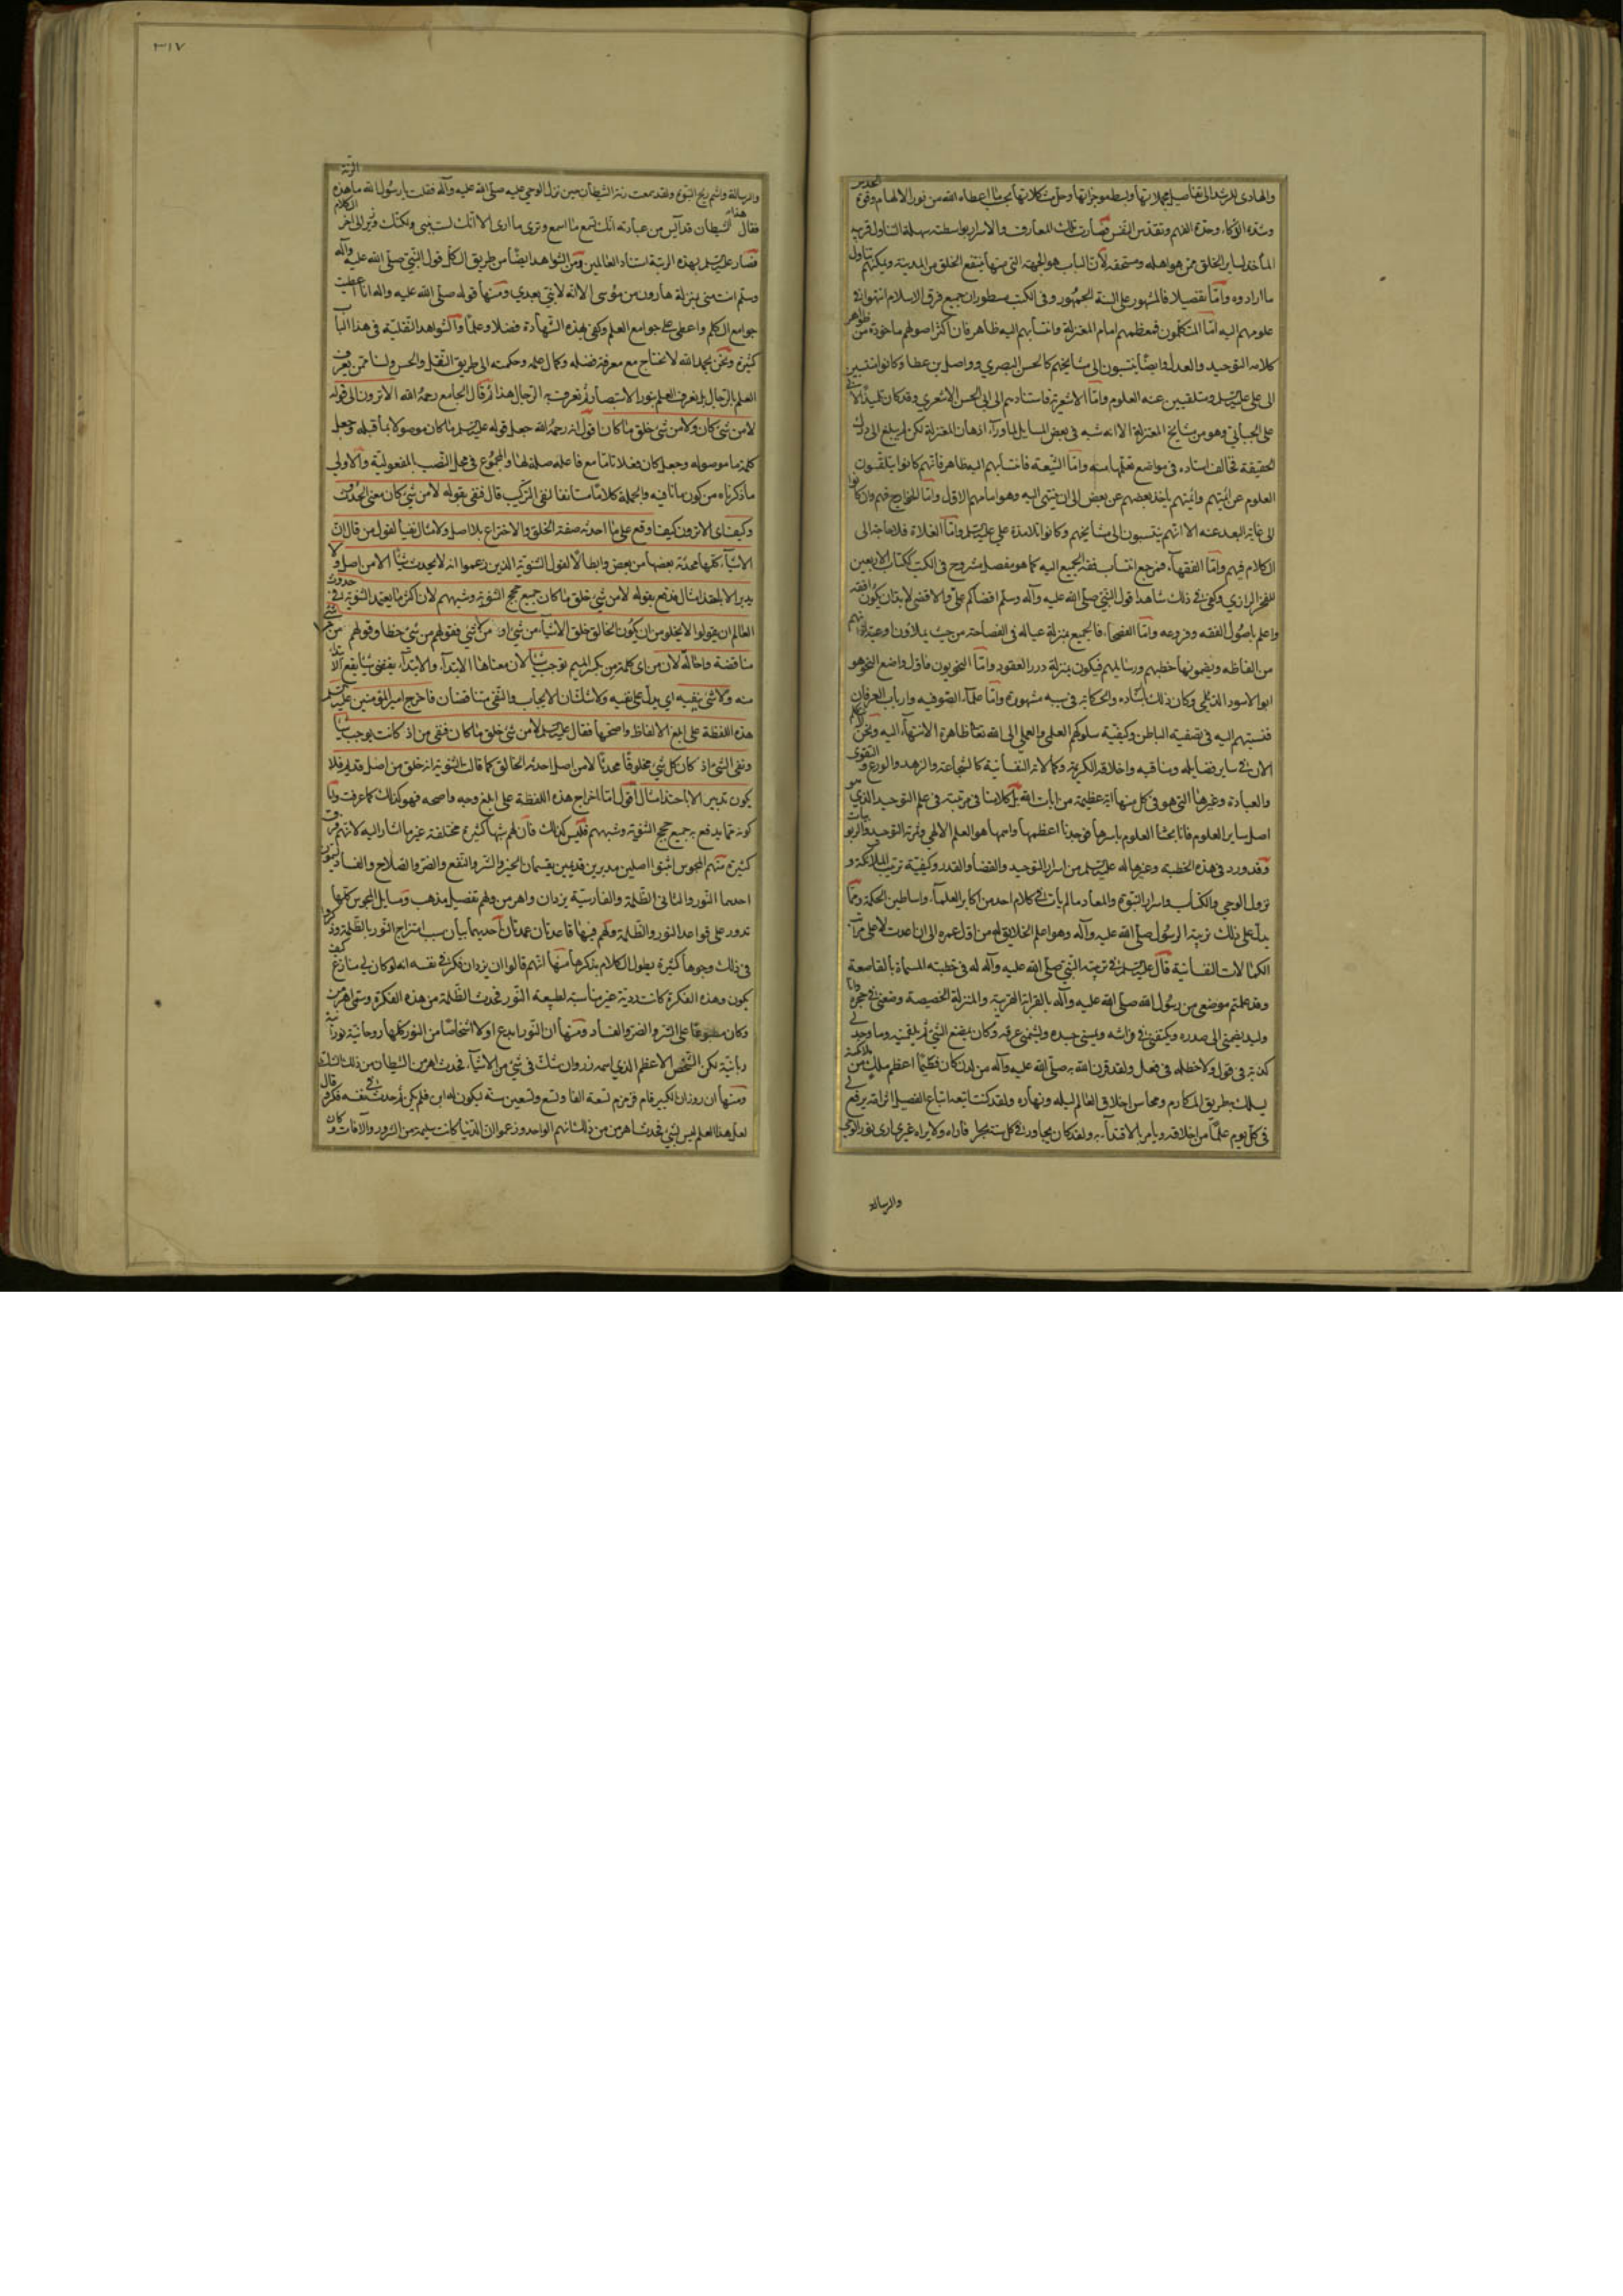 والهادي للرشد الى تفاصيل مجملاتها وبسط موجزاتها وحل مشكلاتها بحسب ما اعطاه الله من نور الالهام وقوة الحدس
وشدة الذكاء وحدة الفهم وتقدس النفس فصارت تلك المعارف والاسرار بواسطته سهلة التناول قريب
المأخذ لساير الخلق ممن هو اهله ومستحقه لأن الباب هو الجهة التي منها ينتفع الخلق من المدينة ويمكنهم تناول
ما ارادوه وامّا تفصيلا فالمشهور على السنة الجمهور وفي الكتب مسطور ان جميع فرق الاسلام انتهوا في
علومهم اليه امّا المتكلمون فمعظمهم امام المعتزلة وانتسابهم اليه ظاهر فان اكثر اصولهم ماخوذة من ظواهر
كلامه التوحيد والعدل وايضًا ينتسبون الى مشايخهم كالحسن البصري وواصل بن عطا وكانوا منتسبين
الى علي عليه السلم ومتلقيين عنه العلوم وامّا الاشعرية فاستنادهم الى ابي الحسن الاشعري وقد كان تلميذًا لابي
علي الجبائي وهو من مشايخ المعتزلة الا انه شبه في بعض المسايل لما وراء اذهان المعتزلة لكن لم يبلغ الى درك
الحقيقة فخالف استاده في مواضع تعلمها منه وامّا الشيعة فانتسابهم اليه ظاهر فانهم كانوا يتلقبون
العلوم عن ائمتهم وائمتهم ياخذ بعضهم عن بعض الى ان ينتهي اليه وهو امامهم الاول وامّا الخوارج فهم وان كانوا
الى غاية البعد عنه الا انهم ينتسبون الى مشايخهم وكانوا تلامذة علي عليه السلم وامّا الغلاة فلا حاجة الى
الكلام فيهم وامّا الفقهاء فمرجع انتساب فقه الجميع اليه كما هو مفصل مشروح في الكتب ككتاب الاربعين
للفخر الرازي وكفى في ذلك شاهدا قول النبي صلى الله عليه وآله وسلم اقضاكم علي والاقضى لا بد ان يكون افقه
واعلم باصول الفقه وفروعه وامّا الفصحاء فالجميع بمنزلة عياله في الفصاحة من حيث يملاون اوعية اذهانهم
من الفاظه ويضمونها خطبهم ورسايلهم فيكون بمنزلة درر العقود وامّا النحويون فاول واضع النحو هو
ابو الاسود الدئلي وكان ذلك بارشاده والحكاية في سببه مشهورة وامّا علماء الصوفيه وارباب العرفان
فنسبتهم اليه في تصفية الباطن وكيفية سلوكهم العلمي والعملي الى الله تعالى ظاهرة الانتهاء اليه ونحن نتكلم
الان في ساير فضايله ومناقبه واخلاقه الكريمة وكمالاته النفسانية كالشجاعة والزهد والورع والتقوى
والعبادة وغيرها التي هو في كل منها آية عظيمة من ايات الله بل كلامنا في مرتبته في علم التوحيد الذي هو
اصل ساير العلوم فانا بحثنا العلوم باسرها فوجدنا اعظمها واهمها هو العلم الالهي ومعرفة التوحيد والربوبيات
وقد ورد في هذه الخطبه وغيرها له عليه السلم من اسرار التوحيد والقضاء والقدر وكيفية ترتيب الملائكة و
نزول الوحي والكتاب واسرار النبوة والمعاد ما لم يأت في كلام احد من اكابر العلماء واساطين الحكمة ومما
يدل على ذلك تربية الرسول صلى الله عليه وآله وهو اعلم الخلايق له من اول عمره الى ان اعدت لاعلى مراتب
الكمالات النفسانية قال عليه السلم في تربيته النبي صلى الله عليه وآله له في خطبته المسماة بالقاصعة
وقد علمتم موضعي من رسول الله صلى الله عليه وآله بالقرابة القريبة والمنزلة الخصيصة وضعني في حجره وانا
وليد يضمني الى صدره ويكنفني في فراشه ويمسني جسده ويشمني عرفه وكان يمضغ الشيء ثم يلقمنيه وما وجد لي
كذبة في قول ولا خطلة في فعل ولقد قرن الله به صلى الله عليه وآله من لدن كان فطيمًا اعظم ملك من ملائكته
يسلك به طريق المكارم ومحاسن اخلاق العالم ليله ونهاره ولقد كنت اتبعه اتباع الفصيل اثر امه يرفع لي
في كل يوم علمًا من اخلاقه ويأمر بالاقتداء به ولقد كان يجاور في كل سنة بحراء فاراه ولا يراه غيري ارى نور الوحي
والرسالة
٣١٧
والرسالة واشم ريح النبوة ولقد سمعت رنة الشيطان حين نزل الوحي عليه صلى الله عليه وآله فقلت يا رسول الله ما هذه الرنة
فقال هذا الشيطان قد آيس من عبادته انك تسمع ما اسمع وترى ما ارى الا انك لست بنبي ولكنك وزير الى اخر الكلام
فصار عليه السلم بهذه الرتبة استاد العالمين ومن الشواهد ايضًا من طريق الكل قول النبي صلى الله عليه وآله
وسلم انت مني بمنزلة هارون من موسى الا انه لا نبي بعدي ومنها قوله صلى الله عليه واله انا اعطيت
جوامع الكلم واعطي علي جوامع العلم وكفى بهذه الشهادة فضلا وعلمًا والشواهد النقلية في هذا الباب
كثيرة ونحن بحمد الله لا نحتاج مع معرفة فضله وكمال علمه وحكمته الى طريق النقل والحس ولسنا ممن يعرف
العلم بالرجال بل نعرف العلم بنور الاستبصار ثم نعرف به الرجال هذا ثم قال الجامع رحمه الله الا ترون الى قوله
لا من شيء كان ولا من شيء خلق ما كان اقول انه رحمه الله جعل قوله عليه السلم ما كان موصولا بما قبله وجعل
كلمة ما موصوله وجعل كان فعلا تاما مع فاعله صلة لها والمجموع في محل النصب المفعولية والاولى
ما ذكرناه من كون ما نافيه والجملة كلامًا مستانفا لنفي التركيب قال فنفى بقوله لا من شيء كان معنى الحدوث
وكيف اي الا ترون كيف اوقع على ما احدثه صفة الخلق والاختراع بلا اصل ولا مثال نفيا لقول من قال ان
الاشياء كلها محدثة بعضها من بعض وابطالًا لقول الثنوية الذين زعموا انه لا يحدث شيئًا الا من اصل ولا
يدبر الا باحتذاء مثال فدفع بقوله لا من شيء خلق ما كان جميع حجج الثنوية وشبههم لان اكثر ما يعتمد الثنوية في حدوث
العالم ان يقولوا لا يخلو من ان يكون الخالق خلق الاشياء من شيء او من لا شيء فقولهم من شيء خطا وقولهم من لا شيء
مناقضة واحالة لان من اي كلمة من بكسر الميم توجب شيئًا لان معناها الابتداء والابتداء يقتضي شيئًا يقع الابتداء
منه ولا شيء ينفيه اي يدل على نفيه ولا شك ان الايجاب والنفي متناقضان فاخرج امير المؤمنين عليه السلم
هذه اللفظة على ابلغ الالفاظ واصحها فقال عليه السلم لا من شيء خلق ما كان فنفى من اذ كانت يوجب شيئًا
ونفى الشيء اذ كان كل شيء مخلوقًا محدثًا لا من اصل احدثه الخالق كما قالت الثنوية انه خلق من اصل قديم فلا
يكون تدبير الا باحتذاء مثال اقول امّا اخراج هذه اللفظة على ابلغ وجه واصحه فهو كذلك كما عرفت وامّا
كونه مما يدفع به جميع حجج الثنوية وشبههم فليس كذلك فان لهم شبها كثيرة مختلفة غير ما اشار اليه لانهم فرق
كثيرة منهم المجوس اثبتوا اصلين مدبرين قديمين يقسمان الخير والشر والنفع والضر والصلاح والفساد يسمون
احدهما النور والثاني الظلمة والفارسية يزدان واهرمن ولهم تفصيل مذهب ومسايل المجوس كلها
تدور على قواعد النور والظلمة ولهم فيها قاعدتان عمدتان احديهما بيان سبب امتزاج النور بالظلمة وذكروا
في ذلك وجوها كثيرة يطول الكلام بذكرها منها انهم قالوا ان يزدان فكر في نفسه انه لو كان لي منازع كيف
يكون وهذه الفكرة كانت ردية غير مناسبة لطبيعة النور فحدث الظلمة من هذه الفكرة وسمي اهرمن
وكان مطبوعًا على الشر والضر والفساد ومنها ان النور ابدع اولا اشخاصًا من النور كلها روحانية نورانية
ربانية لكن الشخص الاعظم الذي اسمه زروان شك في شيء من الاشياء فحدث اهرمن الشيطان من ذلك الشك
ومنها ان زروان الكبير قام فزمزم تسعة الفا وتسع وتسعين سنة ليكون له ابن فلم يكن ثم حدث في نفسه فكر وقال
لعل هذا العلم ليس بشيء فحدث اهرمن من ذلك الهم الواحد وزعموا ان الدنيا كانت سليمة من الشرور والآفات وكان